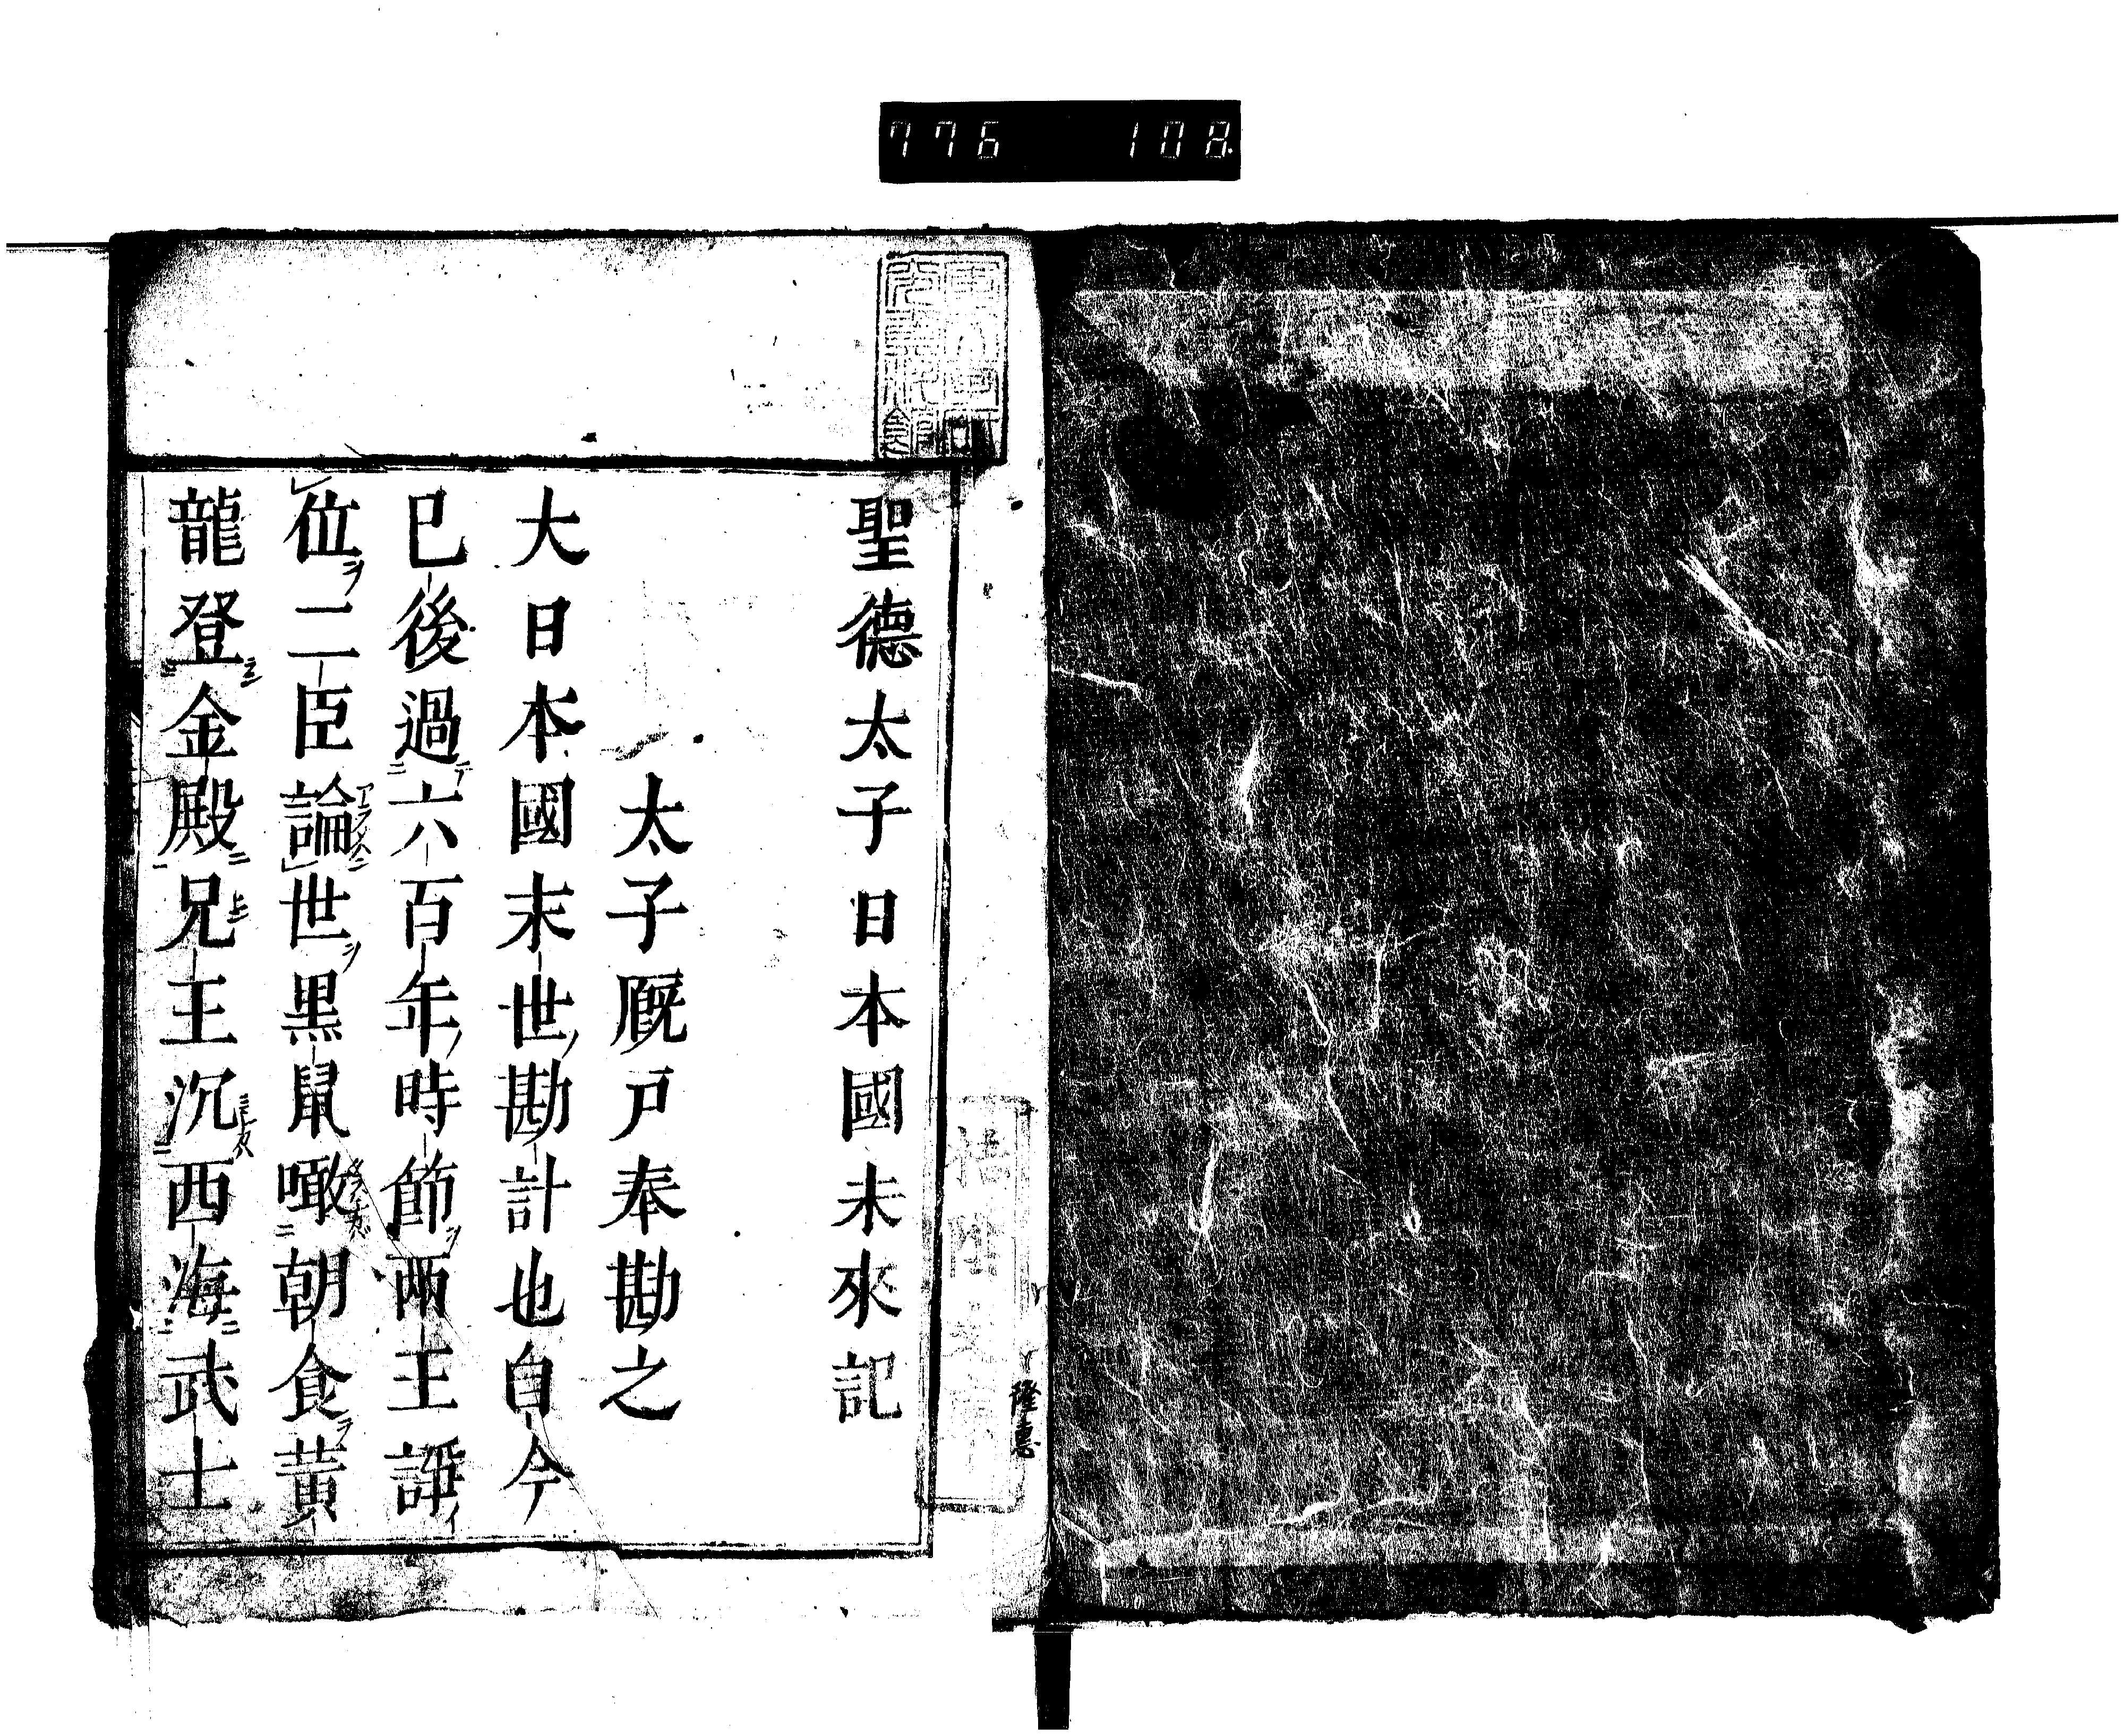 776 108
聖德太子日本國未來記
太子厩戸奉勘之
大日本國末世勘計也自今
已後過六百年時節兩王諍
位二臣論世黒鼠噉朝食黄
龍登金殿兄王沉西海武士
隆恵